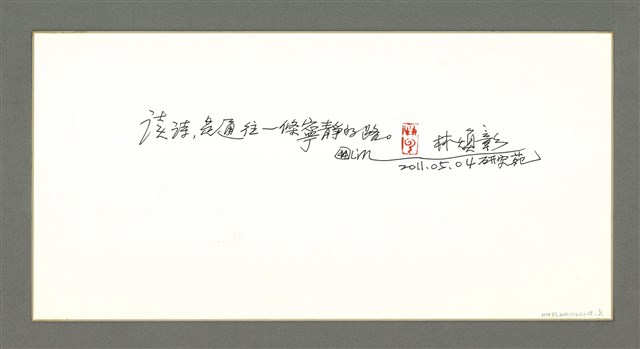 讀詩，是通往一條寧靜的路。
林煥彰
Lin
2011.05.04 研究苑